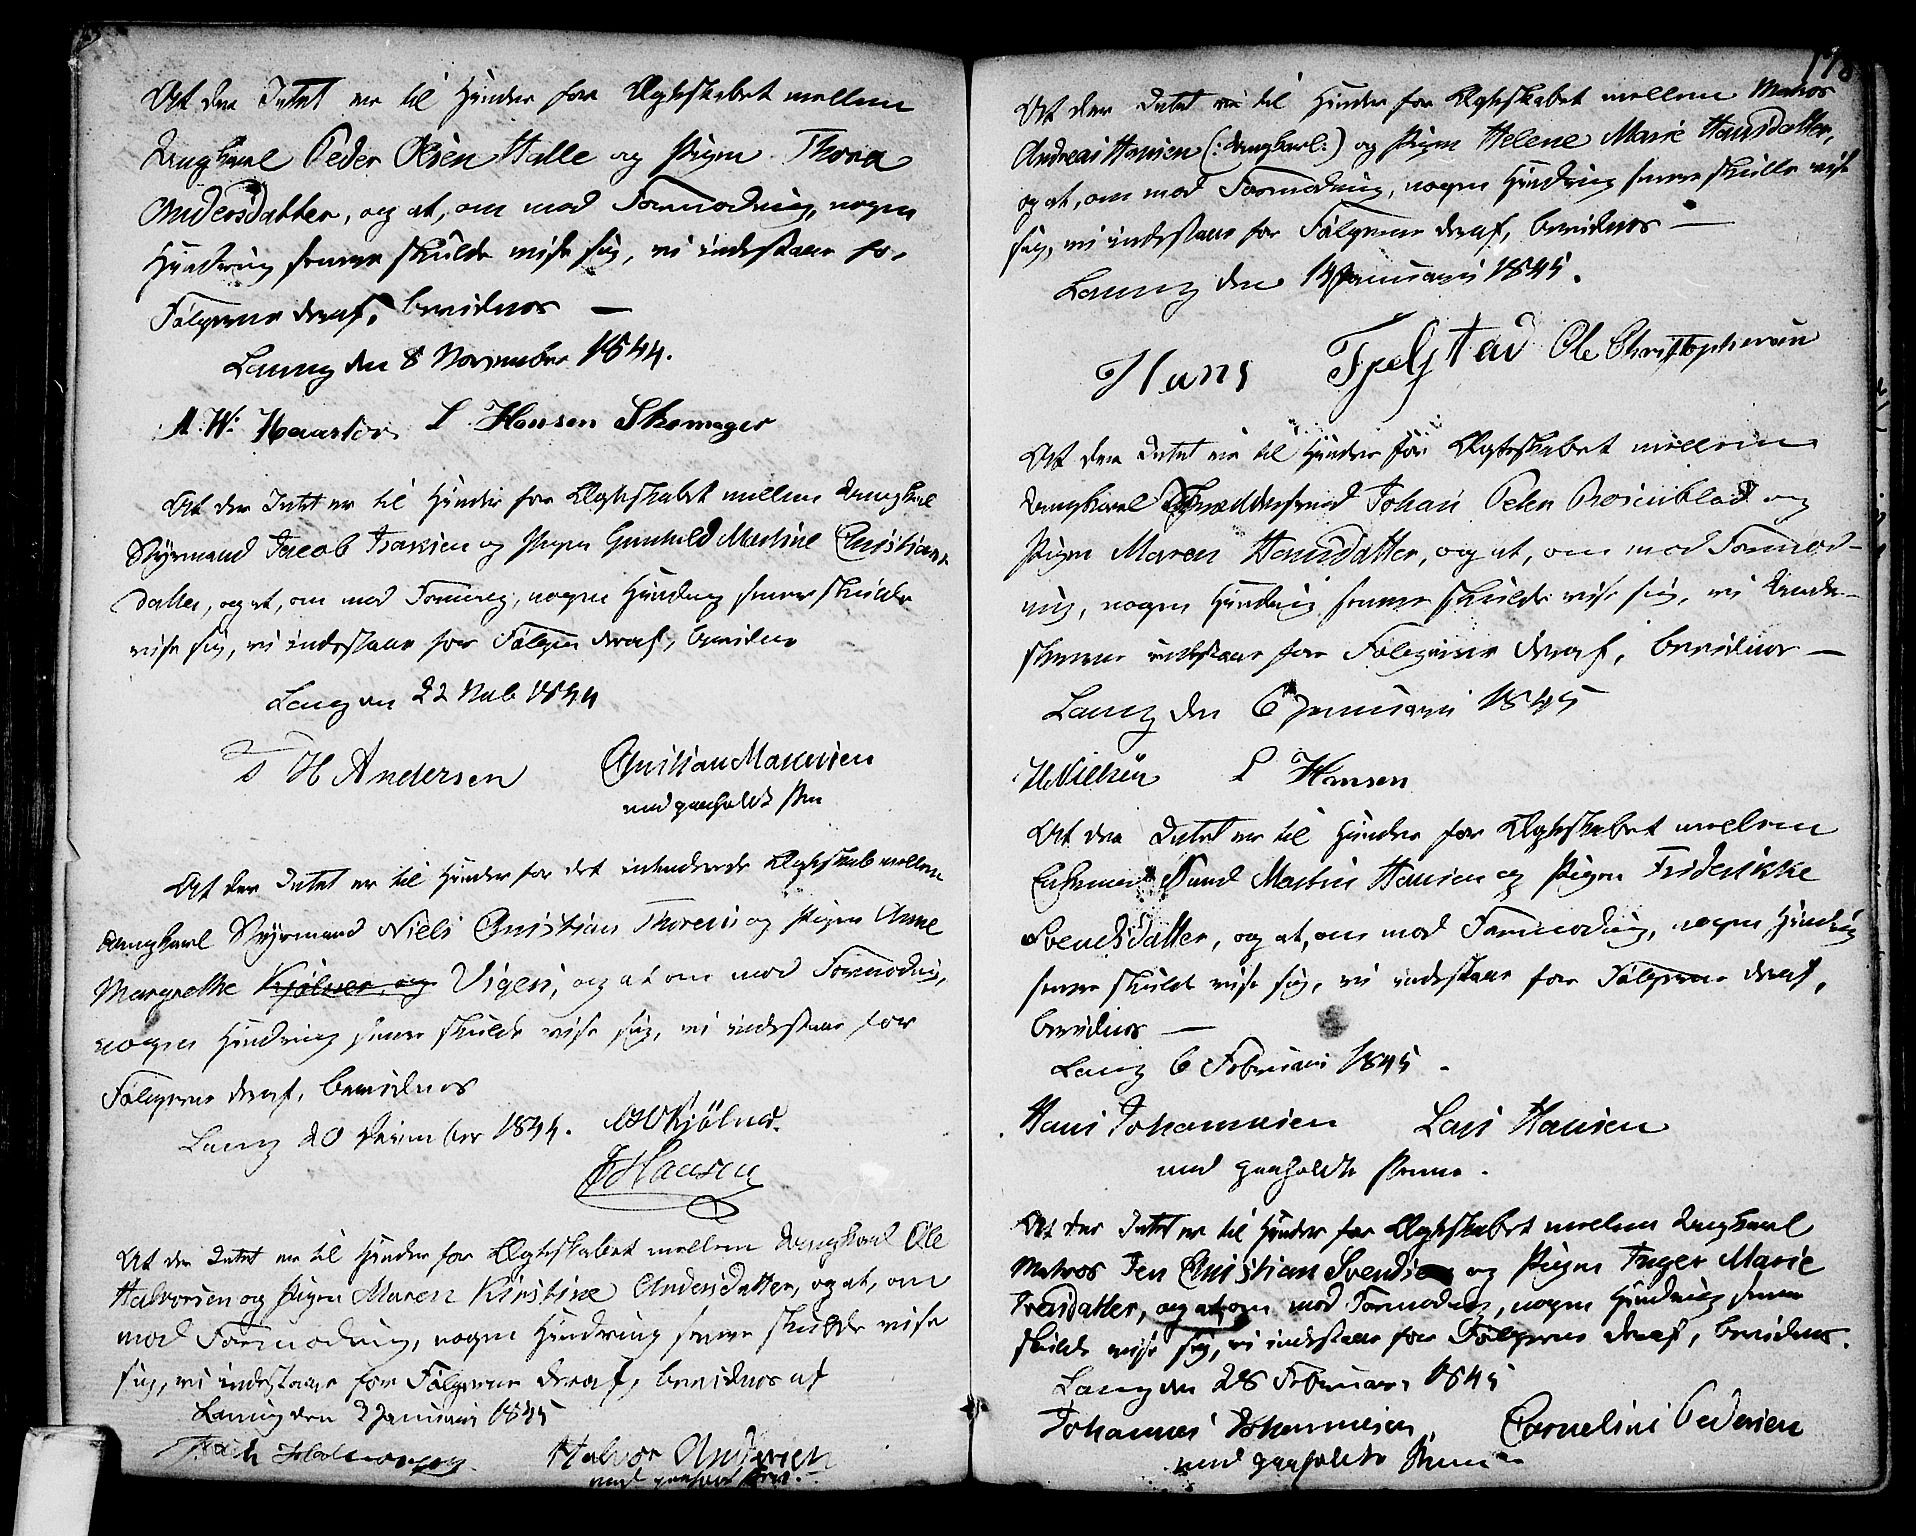 At der Intet er til Hinder for Ægteskabet mellem
Ungkarl Peder Olsen Halle og Pigen Thora
Andersdatter, og at, om mod Formodning, nogen
Hindring senere skulde vise sig, vi indestaae for
Følgerne deraf, bevidnes —
Laurvig den 8 November 1844.
L. Hansen Skomager
At der Intet er til Hinder for Ægteskabet mellem Ungkarl
Styrmand Jacob Isaksen og Pigen Gunhild Martine Christians
datter, og at, om mod Formning, nogen Hindring senere skulde
vise sig, vi indestaae for Følgen deraf, bevidnes
22 Nvb 1844
H Andersen Christian
med paaholdt Pen
At der Intet er til Hinder for det intenderede Ægteskab mellem
Ungkarl Styrmand Niels Christian Thoresen og Pigen Anne
Margrethe Kjølner, og Vigen, og at om mod Formodning,
nogen Hindring senere skulde vise sig, vi indestaae for
Følgerne deraf, bevidnes
Laurvig 20 December 1844. Kjølner.
Hansen
At der Intet er til Hinder for Ægteskabet mellem Ungkarl Ole
Halvorsen og Pigen Maren Kirstine Andersdatter, og at, om
mod Formodning, nogen Hindring senere skulde vise
sig, vi indestaae for Følgerne deraf, bevidnes af
Laurvig den 2 Januari 1845
Halvor Andersen
med paaholdt Pen.
178
At der Intet er til Hinder for Ægteskabet mellem Matros
Andreas Hansen (:Ungkarl:) og Pigen Helene Marie Hansdatter,
og at, om mod Formodning, nogen Hindring senere skulle vise
sig, vi indestaae for Følgerne deraf, bevidnes —
Laurvig den 14 Januari 1845.
Hans Fjelstad Ole Christophersen
At der Intet er til Hinder for Ægteskabet mellem
Ungkarl Skræddersvend Johan Peter Rosenblad og
Pigen Maren Hansdatter, og at, om mod Formod-
ning, nogen Hindring senere skulde vise sig, vi Under-
skrevne indestaae for Følgerne deraf, bevidnes —
Laurvig den 6 Januari 1845
Nielsen L Hansen
At der Intet er til Hinder for Ægteskabet mellem
Enkemand Knud Martin Hansen og Pigen Friderikke
Svendsdatter, og at, om mod Formodning, nogen Hindring
senere skulde vise sig, vi indestaae for Følgerne deraf,
bevidnes —
Laurvig 6 Februari 1845.
Hans Johannesen Lars Hansen
med paaholdte Penne.
At der Intet er til Hinder for Ægteskabet mellem Ungkarl
Matros Jen Christian Svendsen og Pigen Inger Marie
Iversdatter, og at, om mod Formodning, nogen Hindring senere
skulde vise sig, vi indestaae for Følgerne deraf, bevidnes.
Laurvig den 28 Februari 1845
Johannes Johannesen, Cornelius Pedersen
med paaholdte Penne